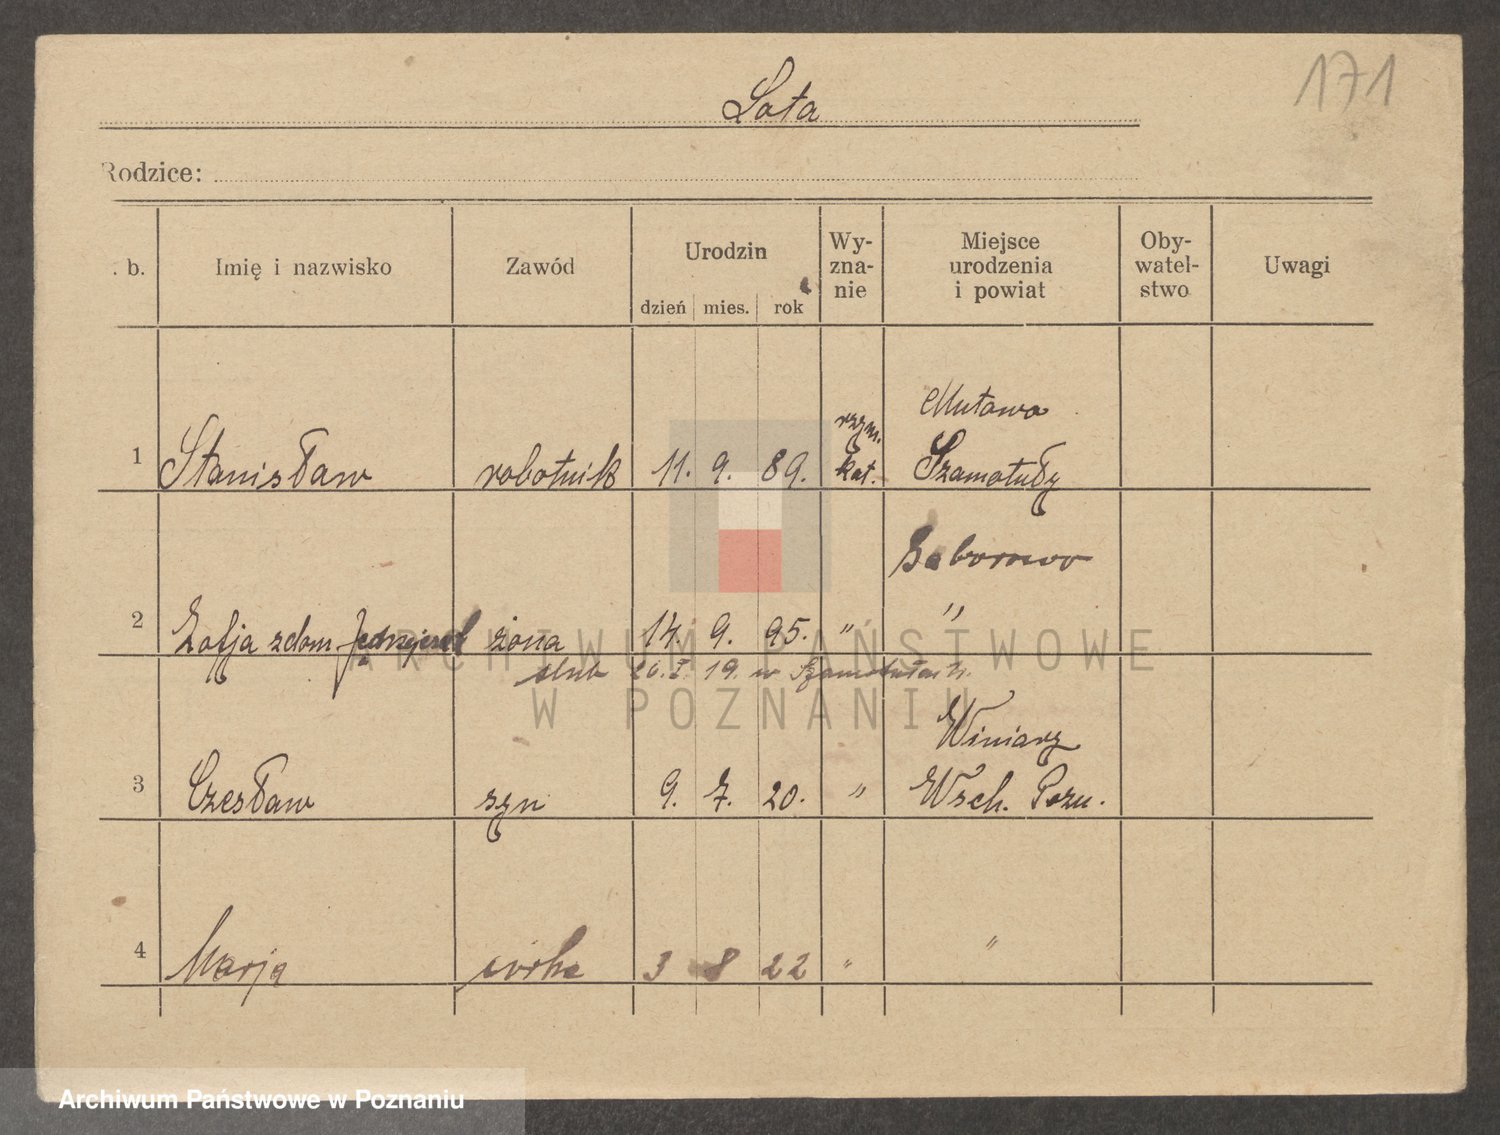 171
Lota
Rodzice:
. b. Imię i nazwisko Zawód Urodzin dzień mies. rok Wy-zna-nie Miejsce urodzenia i powiat Oby-watel-stwo Uwagi
Mutowo
rzym.
1 Stanisław robotnik 11. 9. 89. kat. Szamotuły
Zaborowo
2 Zofja z dom. żona 14. 9. 95. " "
ślub 26. I. 19. w Szamotułach.
Winiary
3 Czesław syn 9. 7. 20. " Wsch. Pozn.
4 Marja córka 3 8 22 " "
ARCHIWUM PAŃSTWOWE
W POZNANIU
Archiwum Państwowe w Poznaniu